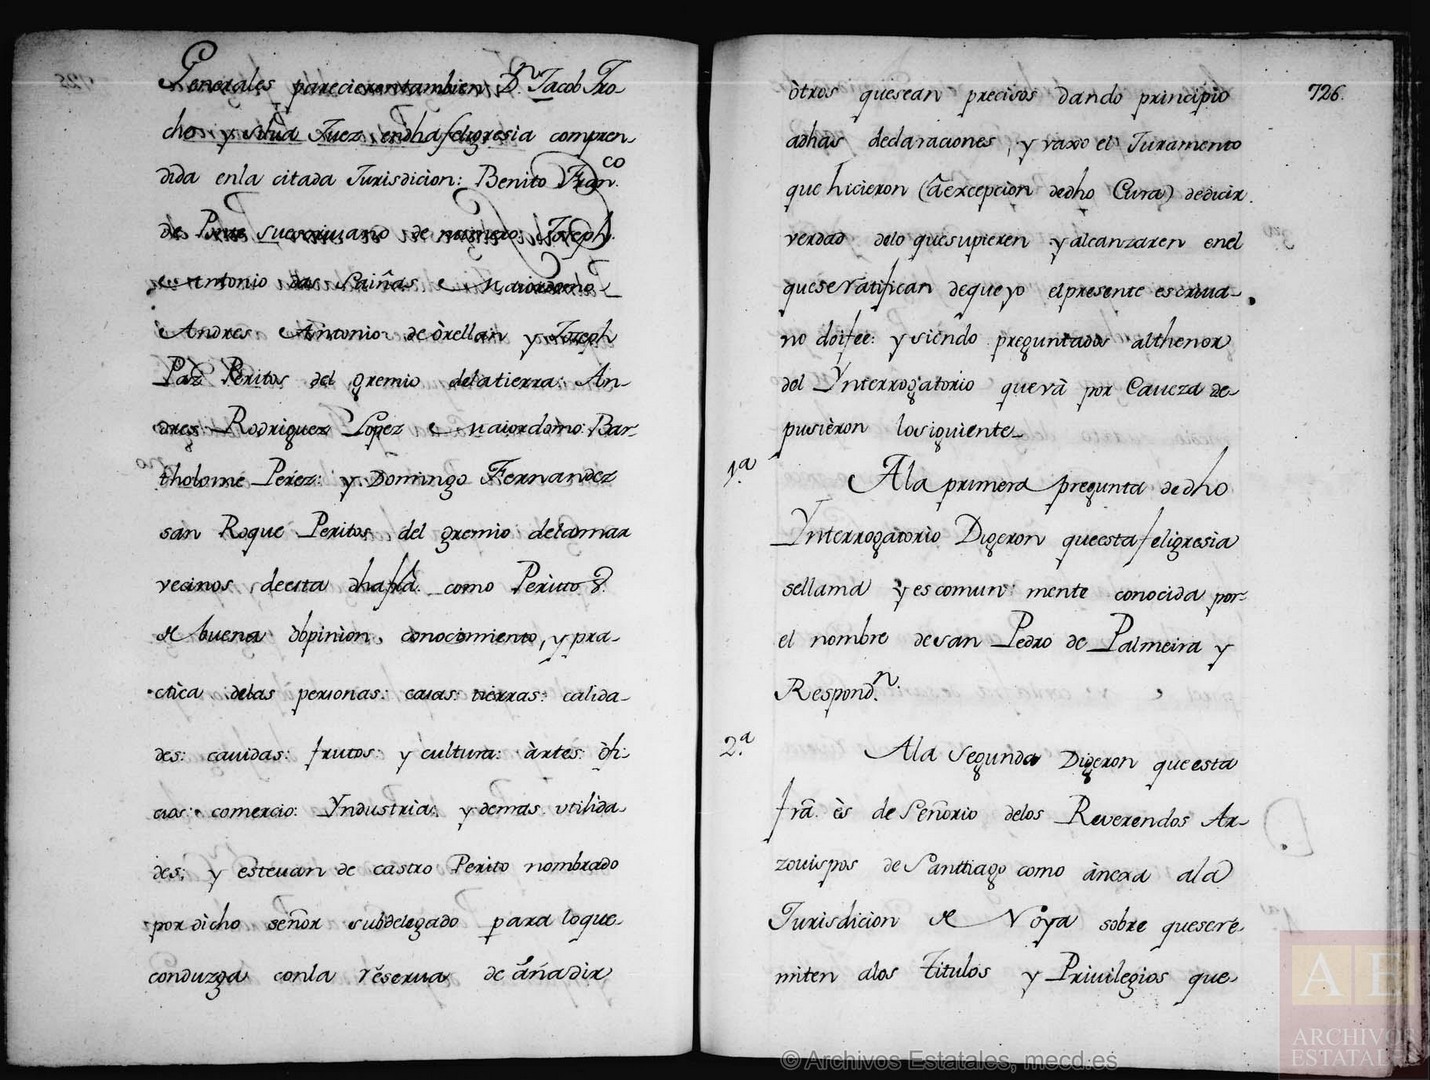 Generales parecieron tambien Dn. Jacob Tro
cho y silua Juez en dha feligresia compren-
dida en la citada Jurisdicion: Benito Franco.
de Pme su escriuano de numero: Joseph.
Antonio das Saiñas Maiordomo
Andres Antonio de òrellan y Joseph
Paz Peritos del gremio de la tierra: An-
dres Rodriguez Lopez Maiordomo: Bar-
tholome Perez: y Domingo Fernandez
san Roque Peritos del gremio de la mar
vecinos de esta dha fra. como Perito
de buena òpinion, conocimiento, y pra-
ctica de las personas: casas: tierras: calida-
des: cauidas: frutos: y cultura: àrtes: ofi-
cios: comercio: Yndustria: y demas vtilida-
des: y esteuan de castro Perito nombrado
por dicho señor subdelegado para lo que
conduzga con la réserua de àñadir
òtros que sean precisos dando principio
adhas declaraciones, y vaxo el Juramento
que hicieron (à excepcion de dho Cura) de dicir
verdad de lo que supieren y alcanzaren en el
que se ratifican de que yo el presente escriua-
no doi fee: y siendo preguntados al thenor
del Ynterrogatorio que và por Caueza de-
pusieron lo siguiente
1.ª A la primera pregunta de dho
Ynterrogatorio Digeron que esta feligresia
se llama y es comun mente conocida por
el nombre de san Pedro de Palmeira y
Respondn.
2.ª A la segunda Digeron que esta
fra. ès de Señorio de los Reverendos Ar-
zouispos de Santtiago como ànexa a la
Jurisdicion de Noya sobre que se re-
miten a los Titulos y Privilegios que
726.
© Archivos Estatales, mecd.es
AE
ARCHIVOS
ESTATALES